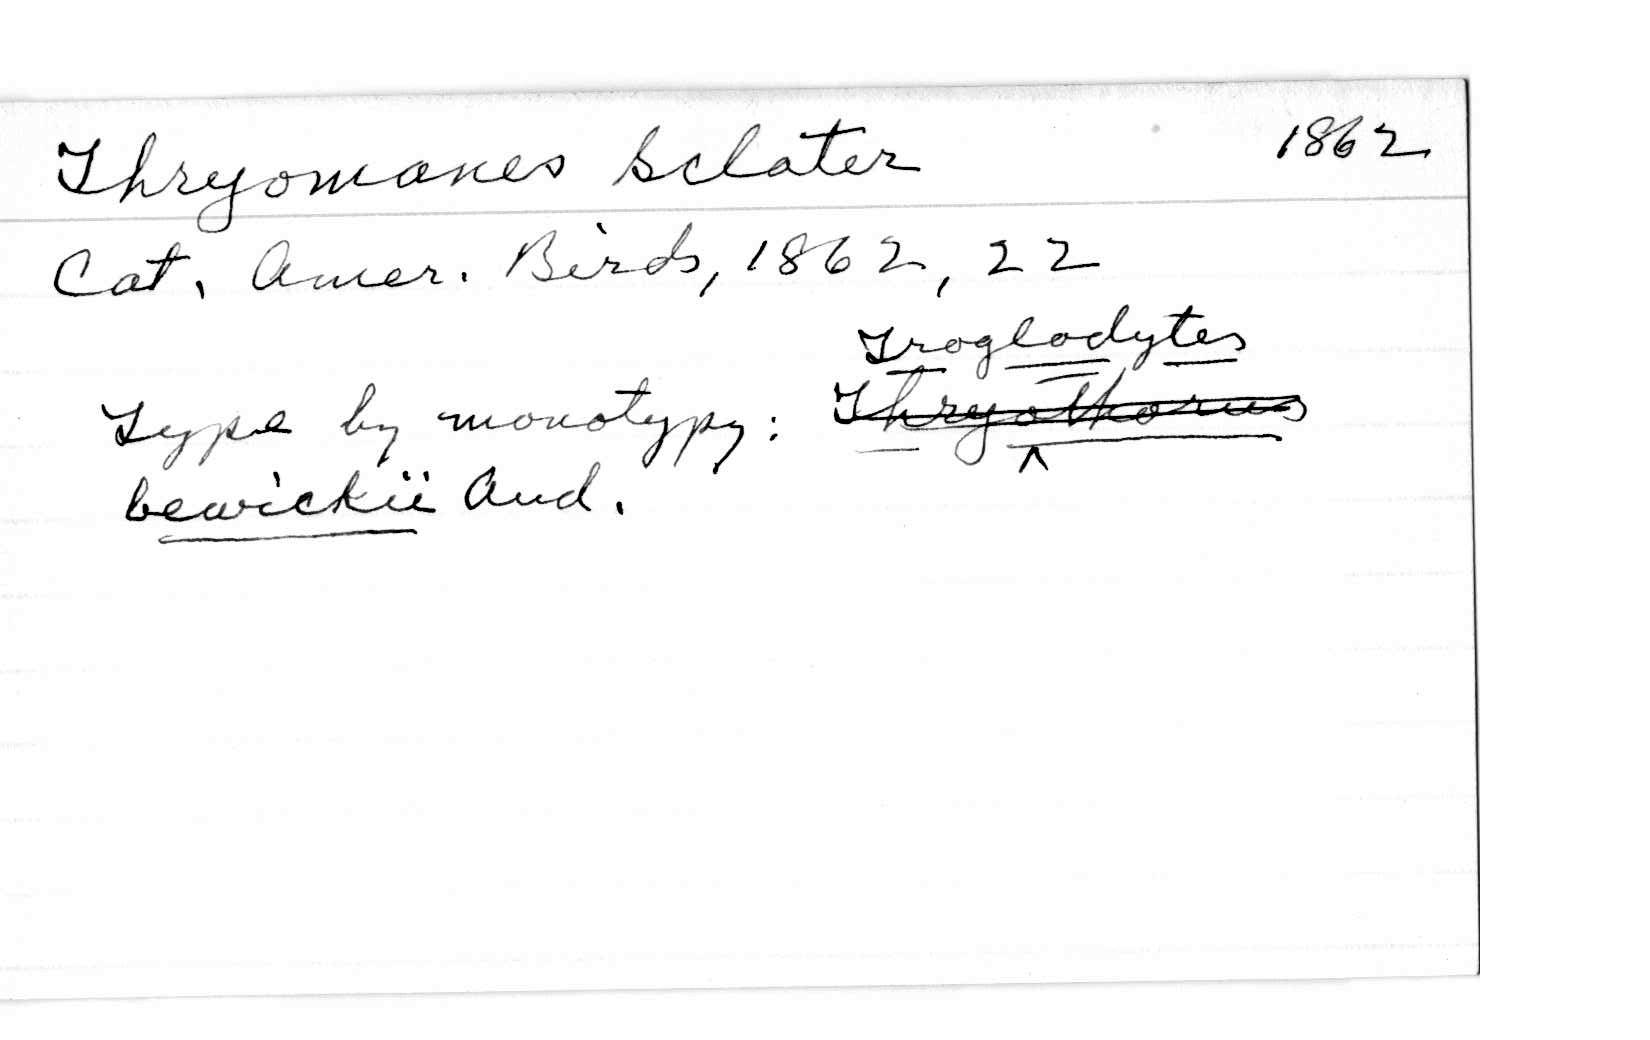 Thryomanes Sclater 1862
Cat. Amer. Birds, 1862, 22
Troglodytes
Type by monotypy: Thryothorus
bewickii Aud.